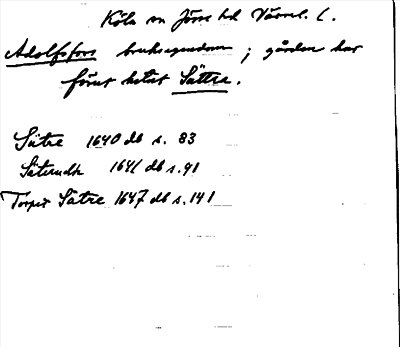 Köla sn Jösse hd Värml. l.
Adolfsfors bruksegendom; gården har
förut hetat Sättre.
Sätre 1640 db s. 83
Säterudh 1641 db s. 91
Torpet Sätre 1647 db s. 141